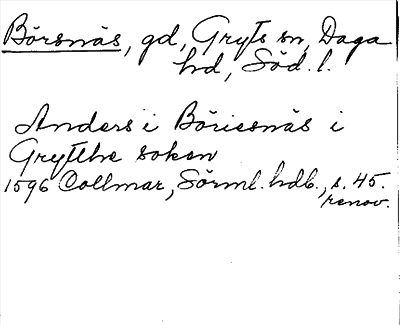 Börsnäs, gd, Gryts sn, Daga
hd, Söd. l.
Anders i Böriesnäs i
Grytthe soken
1596 Collmar, Sörml. hdb., s. 45.
renov.